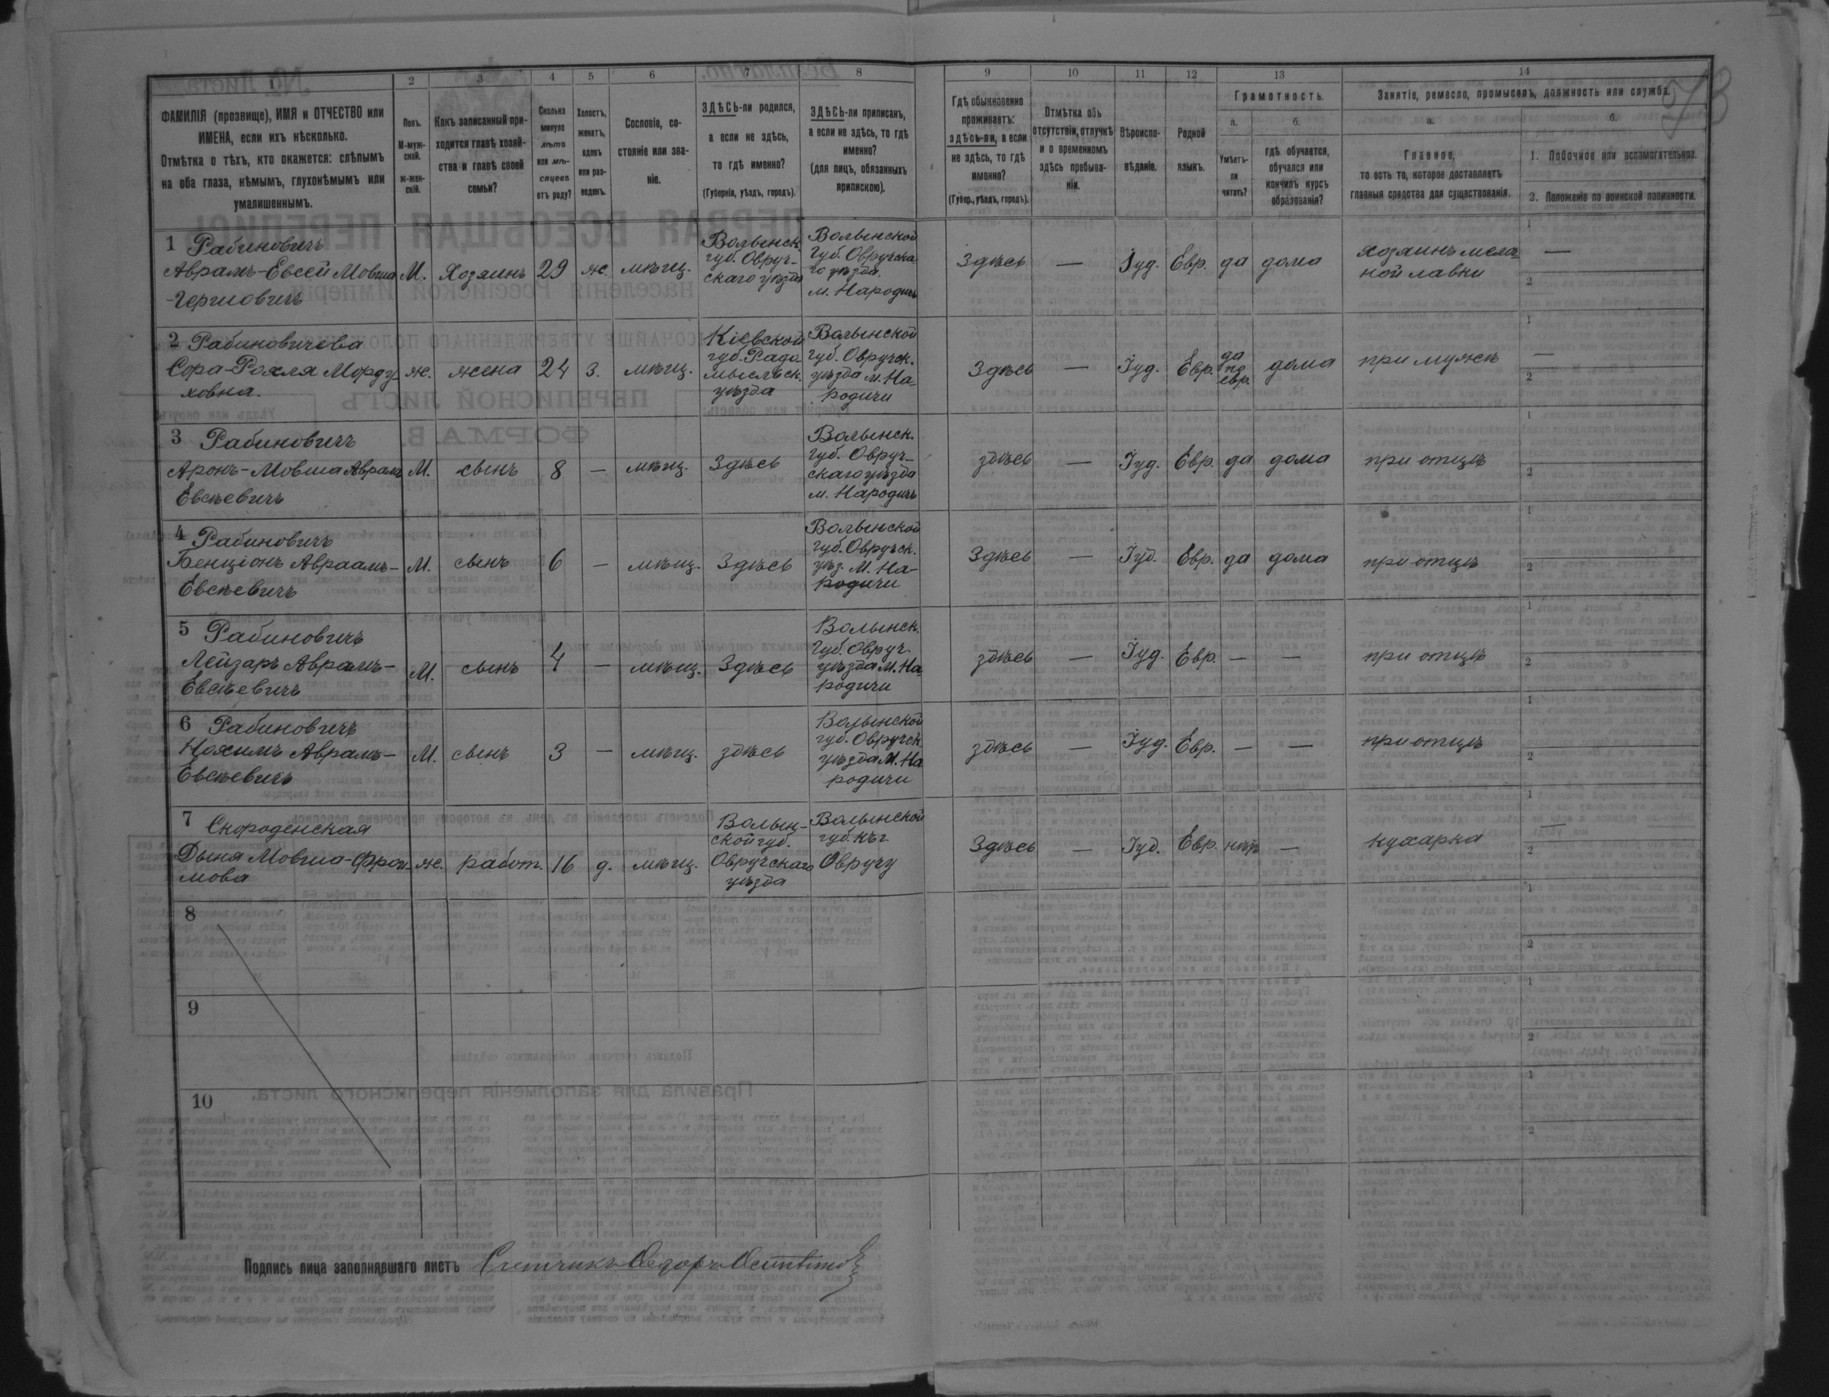 1 2 3 4 5 6 7 8 9 10 11 12 13 14
ФАМИЛІЯ (прозвище), ИМЯ и ОТЧЕСТВО или
ИМЕНА, если ихъ нѣсколько.
Отмѣтка о тѣхъ, кто окажется: слѣпымъ
на оба глаза, нѣмымъ, глухонѣмымъ или
умалишеннымъ.
Полъ.
М-муж-
ской.
ж-жен-
скій.
Какъ записанный при-
ходится главѣ хозяй-
ства и главѣ своей
семьи?
Сколько
минуло
лѣтъ
или мѣ-
сяцевъ
отъ роду?
Холостъ,
женатъ,
вдовъ
или раз-
веденъ.
Сословіе, со-
стояніе или зва-
ніе.
ЗДѢСЬ-ли родился,
а если не здѣсь,
то гдѣ именно?
(Губернія, уѣздъ, городъ).
ЗДѢСЬ-ли приписанъ,
а если не здѣсь, то гдѣ
именно?
(для лицъ, обязанныхъ
припискою).
Гдѣ обыкновенно
проживаетъ:
здѣсь-ли, а если
не здѣсь, то гдѣ
именно?
(Губер., уѣздъ, городъ).
Отмѣтка объ
отсутствіи, отлучкѣ
и о временномъ
здѣсь пребыва-
ніи.
Вѣроиспо-
вѣданіе.
Родной
языкъ.
Грамотность.
а.
Умѣетъ-
ли
читать?
б.
гдѣ обучается,
обучался или
кончилъ курсъ
образованія?
Занятіе, ремесло, промыселъ, должность или служба.
а.
Главное,
то есть то, которое доставляетъ
главныя средства для существованія.
б.
1. Побочное или вспомогательное.
2. Положеніе по воинской повинности.
1 Рабиновичъ
Аврамъ-Евсей Мовша
-Гершовичъ
М. Хозяинъ 29 ж. мѣщ.
Волынск.
губ. Овруч-
скаго уѣзда
Волынской
губ. Овручска
го уѣзда,
м. Народичъ
Здѣсь — Іуд. Евр. да дома
хозяинъ мелоч
ной лавки
—
2 Рабиновичова
Сора-Рохля Морду-
ховна.
ж. жена 24 з. мѣщ.
Кіевской
губ. Радо
мысльск.
уѣзда
Волынской
губ. Овручск.
уѣзда м. На
родичи
Здѣсь — Іуд. Евр.
да
по
евр.
дома при мужѣ —
3 Рабиновичъ
Аронъ-Мовша Аврам
Евсѣевичъ
М. сынъ 8 — мѣщ. Здѣсь
Волынск.
губ. Овруч-
скаго уѣзда
м. Народичъ
здѣсь — Іуд. Евр. да дома при отцѣ
4 Рабиновичъ
Бенціонъ Авраамъ-
Евсѣевичъ
М. сынъ 6 — мѣщ. Здѣсь
Волынской
губ. Овручск.
уѣз. м. На-
родичи
Здѣсь — Іуд. Евр. да дома при отцѣ
5 Рабиновичъ
Лейзаръ Аврамъ-
Евсѣевичъ
М. сынъ 4 — мѣщ. Здѣсь
Волынск.
губ. Овруч-
уѣзда м. На
родичи
здѣсь — Іуд. Евр. — — при отцѣ
6 Рабиновичъ
Нохимъ Аврамъ-
Евсѣевичъ
М. сынъ 3 — мѣщ. здѣсь
Волынской
губ. Овручск
уѣзда м. На
родичи
здѣсь — Іуд. Евр. — — при отцѣ
7 Скороденская
Дыня Мовша-Фрои-
мова
ж. работ. 16 д. мѣщ.
Волын-
ской губ.
Овручскаго
уѣзда
Волынской
губ. къ г
Овручу
Здѣсь — Іуд. Евр. нѣтъ — кухарка —
8
9
10
Подпись лица заполнявшаго листъ Счетчикъ Ѳедоръ